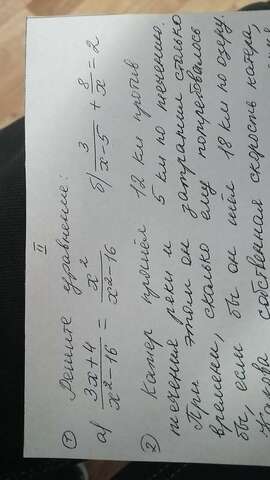 II
① Решите уравнение:
а) (3x+4)/(x²-16) = x²/(x²-16) б) 3/(x-5) + 8/x = 2
② Катер прошёл 12 км против
течения реки и 5 км по течению.
При этом он затратил столько
времени, сколько ему потребовалось
бы, если бы он шёл 18 км по озеру.
Какова собственная скорость катера,